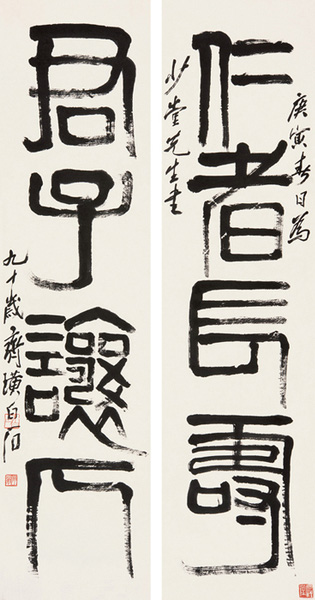 庚寅春日為
仁者長壽
少堂先生書
君子讓人
九十歲齊璜白石